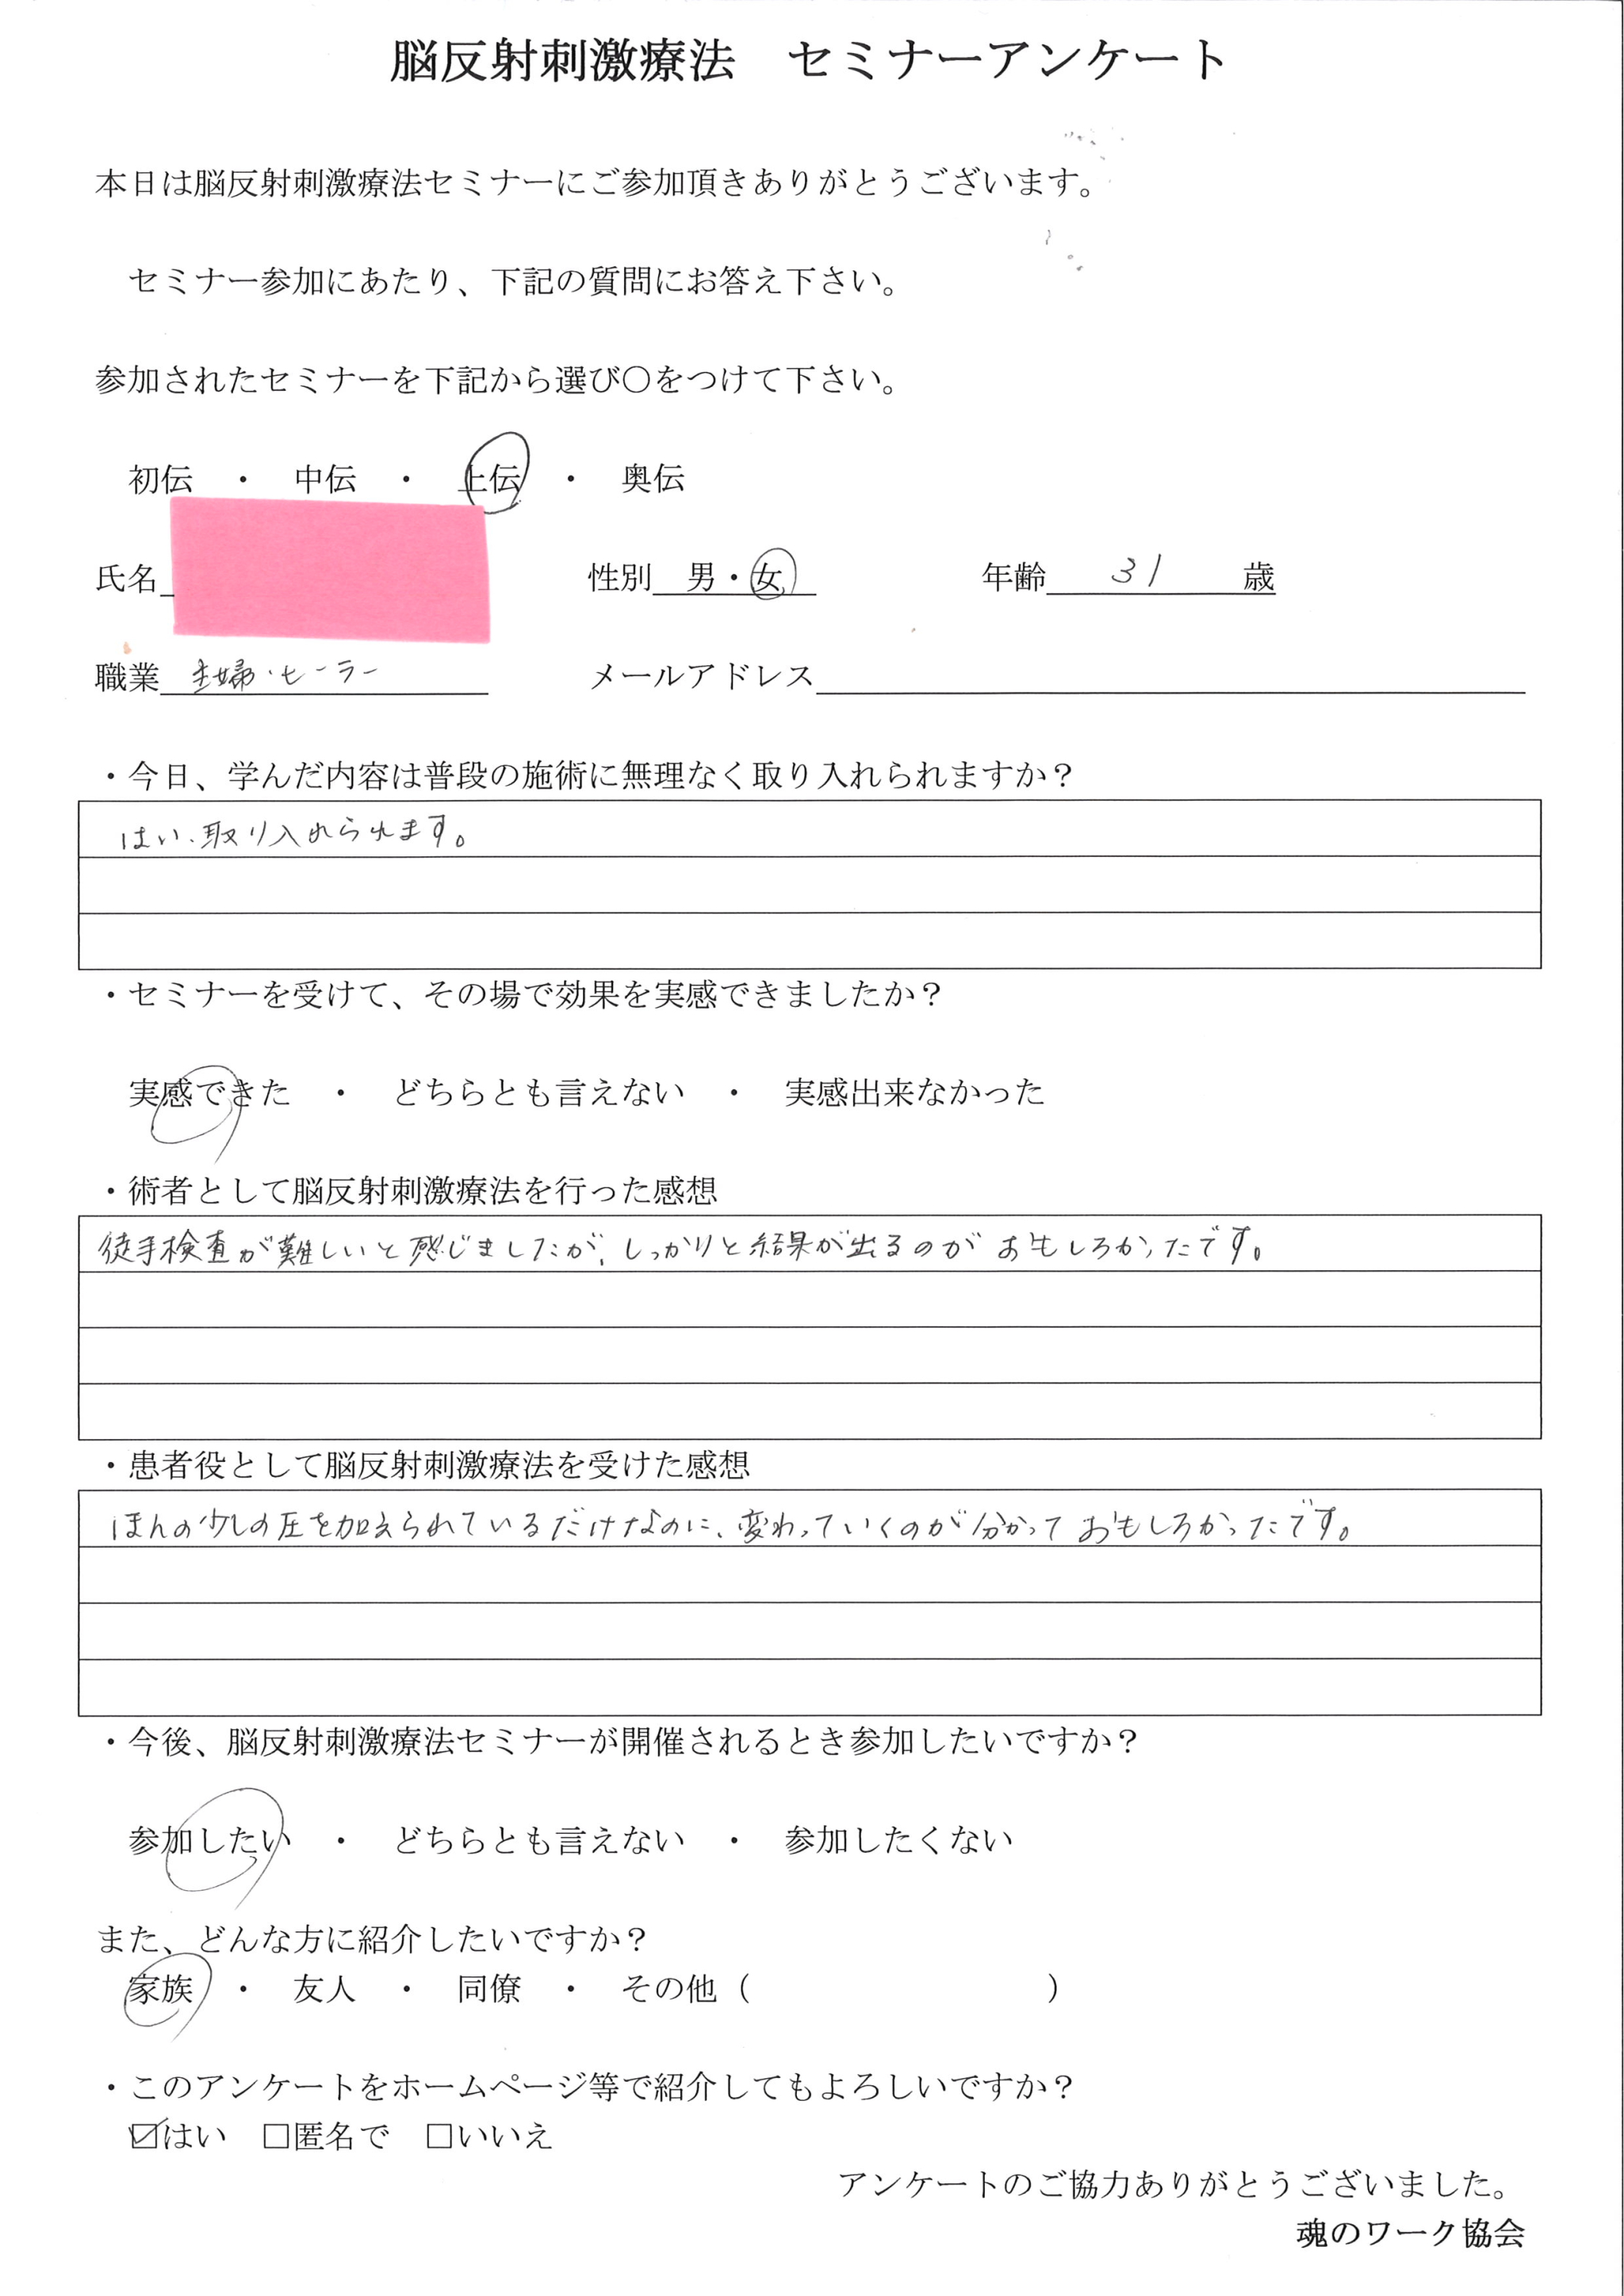 脳反射刺激療法　セミナーアンケート
本日は脳反射刺激療法セミナーにご参加頂きありがとうございます。
セミナー参加にあたり、下記の質問にお答え下さい。
参加されたセミナーを下記から選び〇をつけて下さい。
初伝　・　中伝　・　上伝　・　奥伝
氏名　性別　男・女　年齢　31　歳
職業　主婦・ヒーラー　メールアドレス
・今日、学んだ内容は普段の施術に無理なく取り入れられますか？
はい、取り入れられます。
・セミナーを受けて、その場で効果を実感できましたか？
実感できた　・　どちらとも言えない　・　実感出来なかった
・術者として脳反射刺激療法を行った感想
徒手検査が難しいと感じましたが、しっかりと結果が出るのがおもしろかったです。
・患者役として脳反射刺激療法を受けた感想
ほんの少しの圧を加えられているだけなのに、変わっていくのが分かっておもしろかったです。
・今後、脳反射刺激療法セミナーが開催されるとき参加したいですか？
参加したい　・　どちらとも言えない　・　参加したくない
また、どんな方に紹介したいですか？
家族　・　友人　・　同僚　・　その他（　　　　　　　　　）
・このアンケートをホームページ等で紹介してもよろしいですか？
☑はい　□匿名で　□いいえ
アンケートのご協力ありがとうございました。
魂のワーク協会